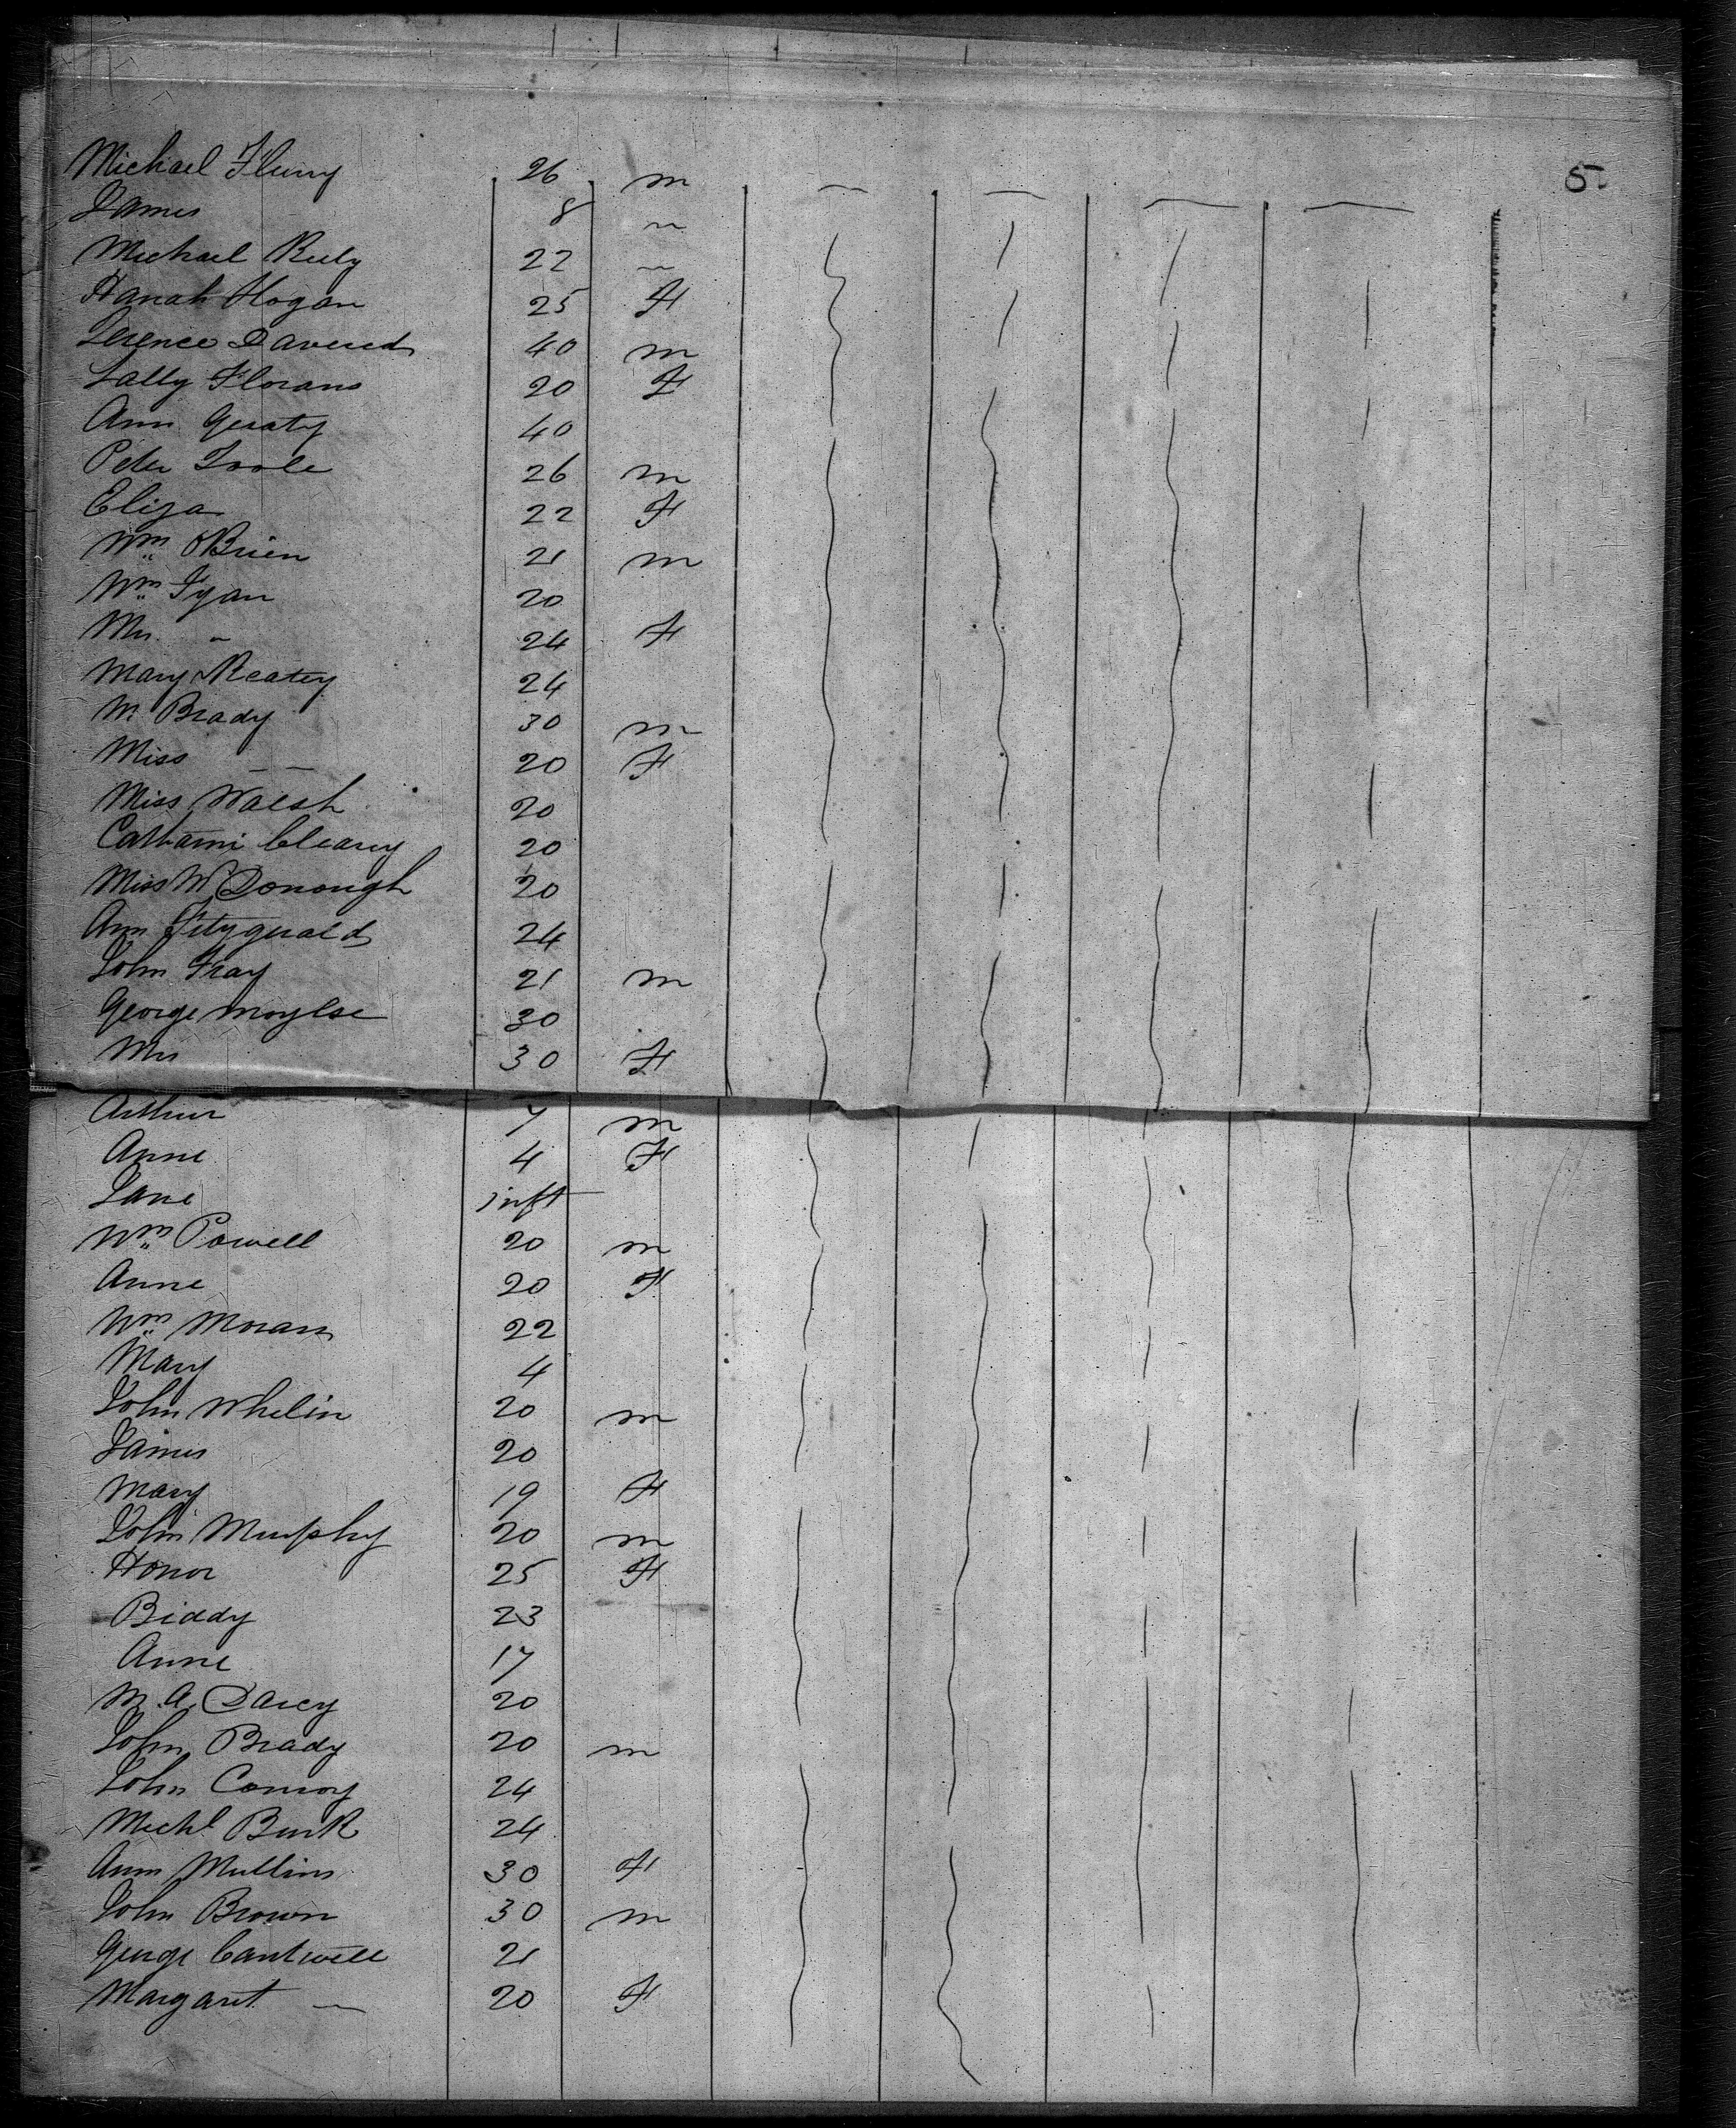 5
Michael Flurry 26 m
James 8 "
Michael Riely 22 "
Hanah Hogan 25 F
Terence Davered 40 m
Sally Florans 20 F
Ann Geraty 40
Peter Toole 26 m
Eliza 22 F
Wm OBrien 21 m
Wm Fyan 20
Mrs " 24 F
Mary Keatey 24
M Brady 30 m
Miss — — 20 F
Miss Walsh 20
Catharni Cleary 20
Miss McDonough 20
Ann Fitzgerald 24
John Fray 21 m
George Moylse 30
Mrs 30 F
Arthur 7 m
Anne 4 F
Jane inft
Wm Powell 20 m
Anne 20 F
Wm Moran 22
Mary 4
John Whelin 20 m
James 20
Mary 19 F
John Murphy 20 m
Honor 25 F
Biddy 23
Anne 17
M. A. Darcy 20
John Brady 20 m
John Conroy 24
Michl Burk 24
Ann Mullins 30 F
John Brown 30 m
George Cantwell 21
Margaret — 20 F